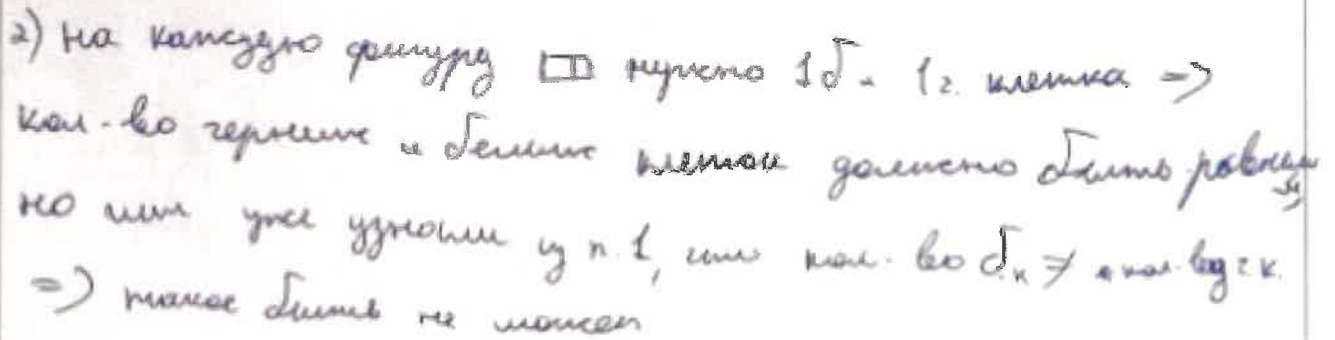 2) на каждую фигуру нужно 1б - 1ч. клетка =>
кол-во черных и белых клеток должно быть равным
но мы уже узнали из п. 1, что кол-во б.к ≠ кол-ву ч к.
=> такое быть не может